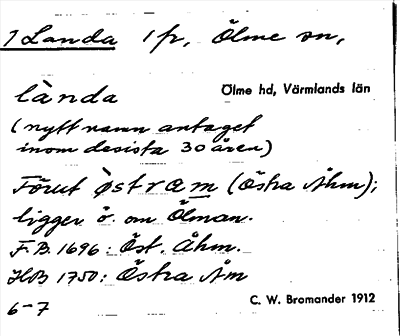 1 Landa 1/2, Ölme sn,
Ölme hd, Värmlands län
lànda
(nytt namn antaget
inom de sista 30 åren)
Förut östra m (Östra Åhm);
ligger ö. om Ölman.
F.B. 1696: Öst. Åhm.
HB 1750: Östra Åm
6-7
C. W. Bromander 1912